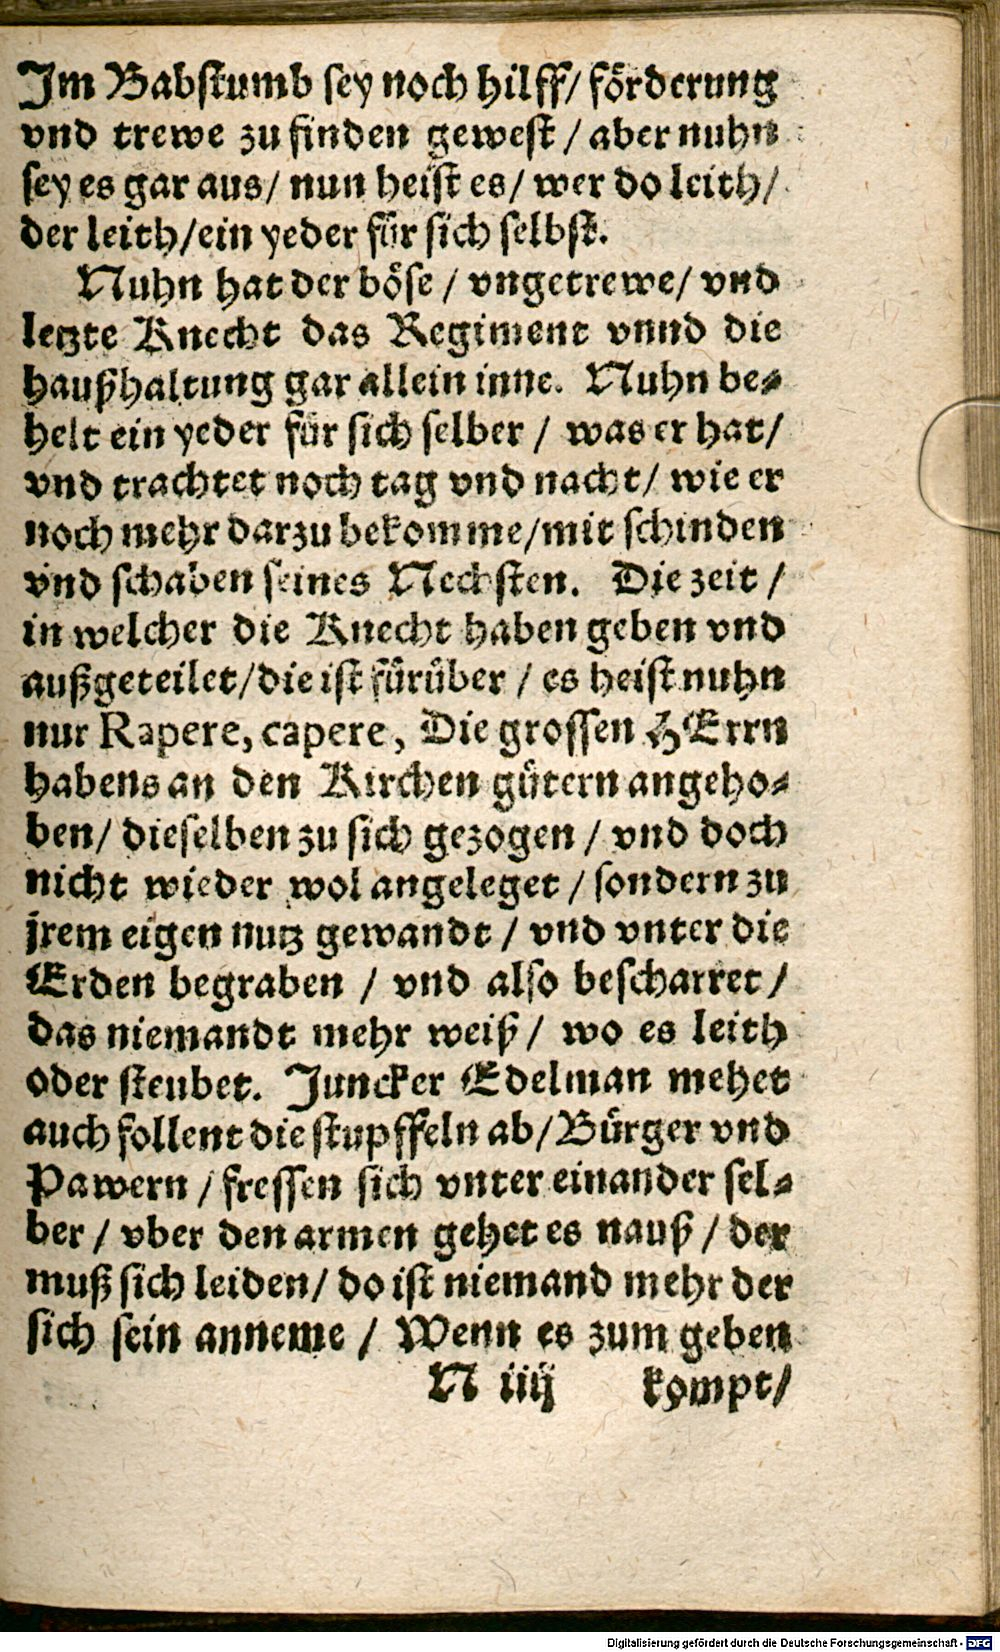 Im Babstumb sey noch hilff/ förderung
vnd trewe zu finden gewest / aber nuhn
sey es gar aus/ nun heist es/ wer do leith/
der leith/ein yeder für sich selbst.
Nuhn hat der böse / vngetrewe/ vnd
letzte Knecht das Regiment vnnd die
haußhaltung gar allein inne. Nuhn be-
helt ein yeder für sich selber / was er hat/
vnd trachtet noch tag vnd nacht/ wie er
noch mehr darzu bekomme/mit schinden
vnd schaben seines Nechsten. Die zeit /
in welcher die Knecht haben geben vnd
außgeteilet/die ist fürüber / es heist nuhn
nur Rapere, capere, Die grossen HErrn
habens an den Kirchen gütern angeho-
ben/ dieselben zu sich gezogen / vnd doch
nicht wieder wol angeleget / sondern zu
jrem eigen nutz gewandt / vnd vnter die
Erden begraben / vnd also bescharret /
das niemandt mehr weiß / wo es leith
oder steubet. Juncker Edelman mehet
auch follent die stupffeln ab/ Bürger vnd
Pawern / fressen sich vnter einander sel-
ber / vber den armen gehet es nauß / der
muß sich leiden/ do ist niemand mehr der
sich sein anneme / Wenn es zum geben
N iiij kompt/
Digitalisierung gefördert durch die Deutsche Forschungsgemeinschaft - DFG